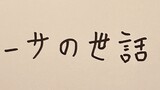 ーサの世話